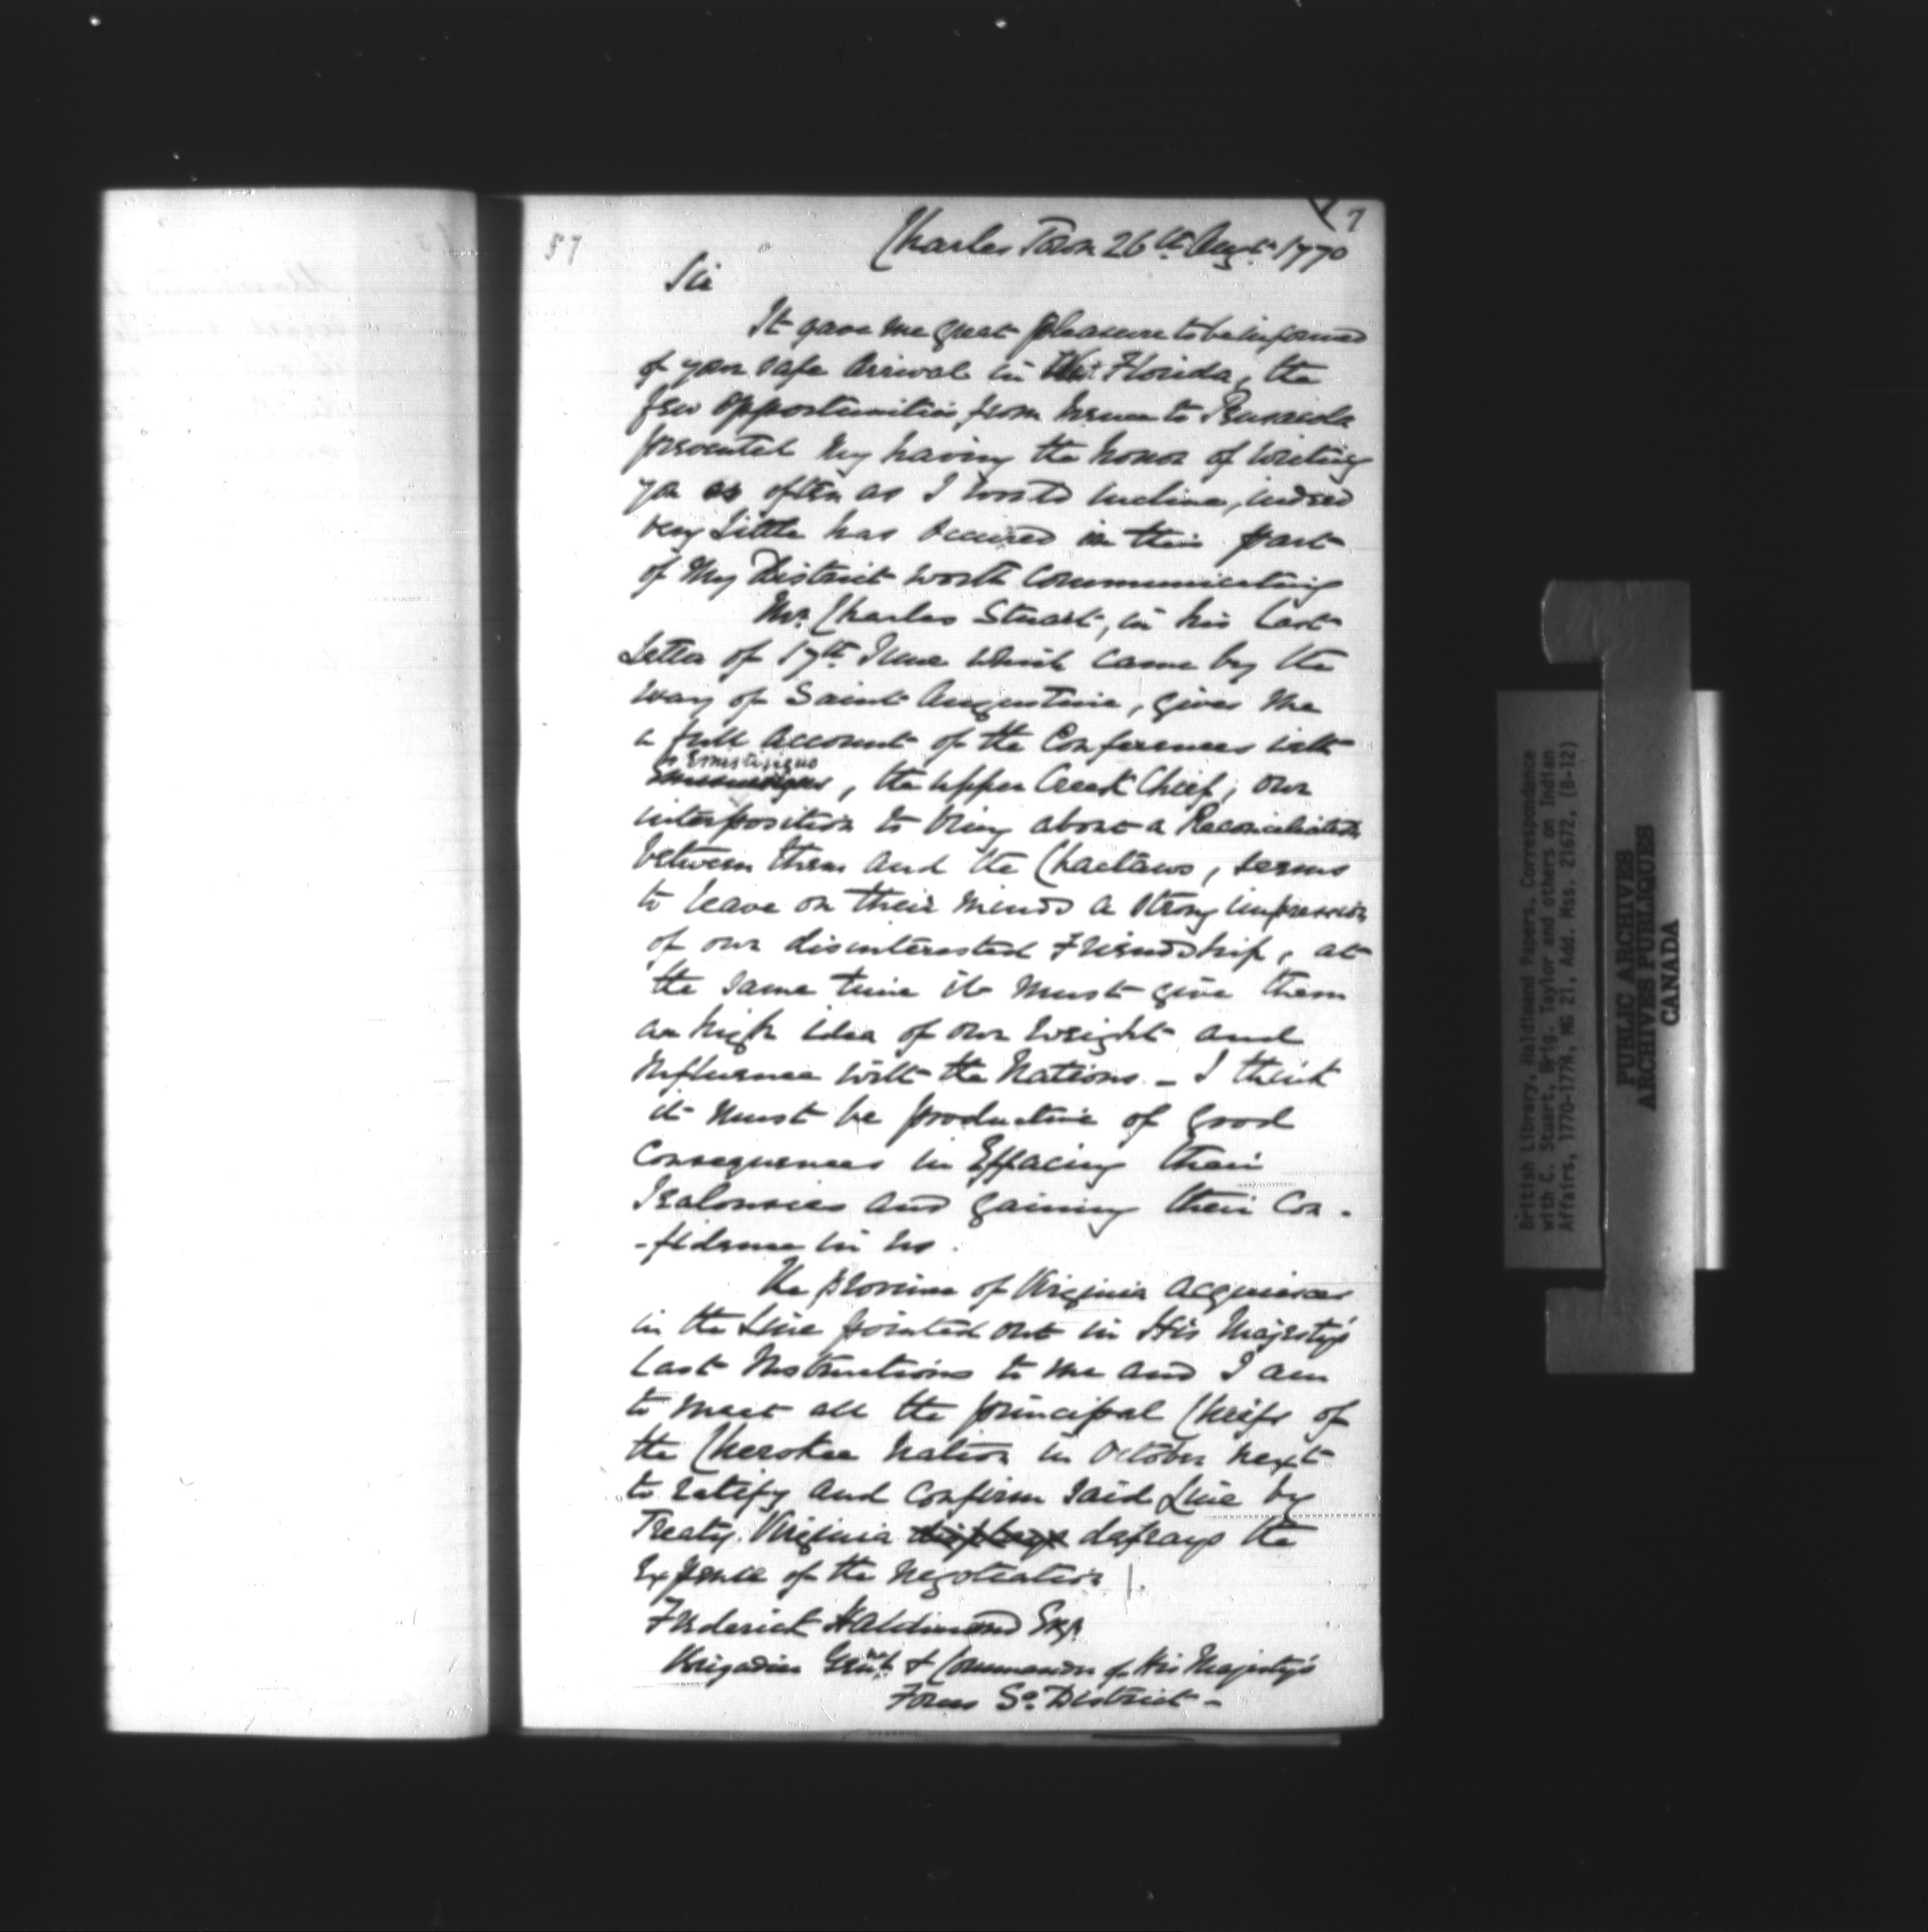 57
7
Charles Town 26th Augt 1770
Sir
It gave me great pleasure to be informed
of your safe Arrival in West Florida, the
few opportunities from hence to Pensacola
prevented my having the honor of writing
you as often as I wou'd incline, indeed
very Little has occured in this part
of my District worth Communicating
Mr. Charles Stuart, in his Last
Letter of 17th June which came by the
way of Saint Augustine, gives me
a full account of the Conferences with
Emistisiguo
, the upper Creek Chief, our
interposition to bring about a Reconciliation
between them and the Chactaws, seems
to leave on their minds a strong impression
of our disinterested Friendship, at
the same time it must give them
an high idea of our weight and
Influence with the Nations - I think
it must be productive of good
Consequences in Effacing their
Jealousies and gaining their Con-
-fidence in us.
The province of Virginia acquiesces
in the Line pointed out in His Majesty's
Last Instructions to me and I am
to meet all the principal Cheifs of
the Cherokee Nation in October next
to ratify and confirm said Line by
Treaty. Virginia defrays the
Expence of the negotiation
Frederick Haldimand Esqr
Brigadier Genl & Commander of His Majesty's
Forces So. District -
British Library. Haldimand Papers. Correspondence
with C. Stuart, Brig. Taylor and others on Indian
Affairs, 1770-1774, MG 21, Add. Mss. 21672, (B-12)
PUBLIC ARCHIVES
ARCHIVES PUBLIQUES
CANADA